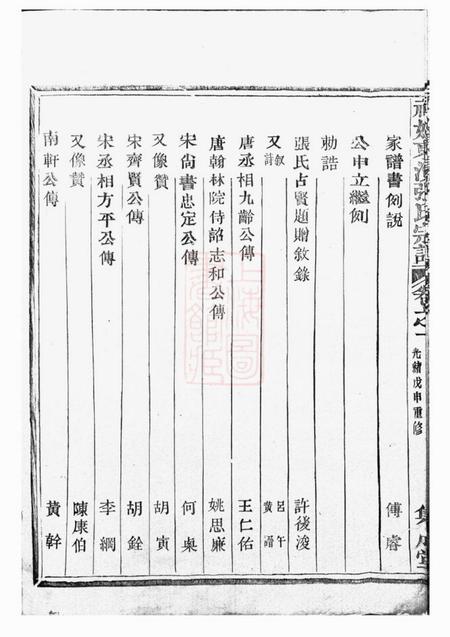 張氏宗譜 卷之一 光緒戊申重修
家譜書例說 傅睿
公申立繼例
勅誥
張氏占賢題贈敘錄 許後浚
又敘 呂午
又詩 黃𧫴
唐丞相九齡公傳 王仁佑
唐翰林院侍詔志和公傳 姚思廉
宋尚書忠定公傳 何㮚
又像贊 胡寅
宋齊賢公傳 胡銓
宋丞相方平公傳 李綱
又像贊 陳康伯
南軒公傳 黃幹
上海圖書館藏